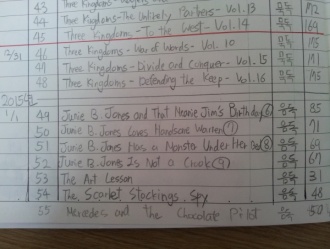 43 Three Kingdoms - Vol.13 음독 172
44 Three Kingdoms - The Unlikely Partners - 음독 169
45 Three Kingdoms - To the West - Vol.14 음독
3/31 46 Three Kingdoms - Way of Words - Vol. 10 음독
47 Three Kingdoms - Divide and Conquer - Vol.15 음독
48 Three Kingdoms - Defending the Keep - Vol.16 음독
2015년
1/1 49 Junie B. Jones and That Meanie Jim's Birthday ⑥ 음독 85
50 Junie B. Jones Loves Handsome Warren ⑦ 음독 71
51 Junie B. Jones Has a Monster Under Her Bed ⑧ 음독 69
52 Junie B. Jones Is Not a Crook ⑨ 음독
53 The Art Lesson 음독 31
54 The Scarlet Stockings Spy 음독 48
55 Mercedes and the Chocolate Pilot 음독 50